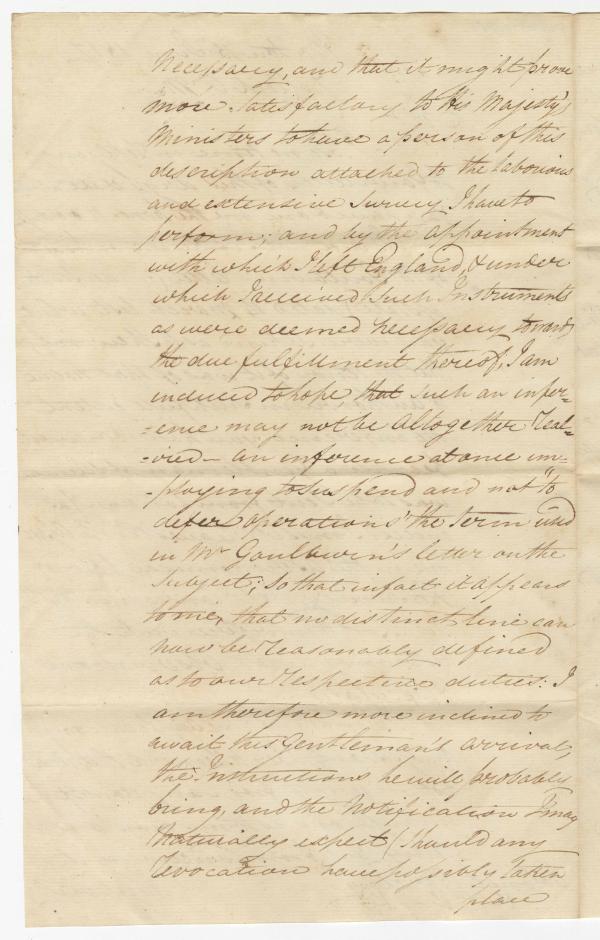 Necessary, and that it might prove
more satisfactory to His Majesty's
Ministers to have a person of this
description attached to the laborious
and extensive Survey I have to
perform; and by the appointment
with which I left England, & under
which I received such Instruments
as were deemed necessary towards
the due fulfillment thereof, I am
induced to hope that such an infer=
=ence may not be altogether real=
=ized — an inference at once im=
=ploying to suspend and not "to
defer operations" the term used
in Mr Goulburn's letter on the
Subject; so that in fact it appears
to me, that no distinct line can
now be reasonably defined
as to our respective duties: I
am therefore more inclined to
await this Gentleman's arrival,
the Instructions he will probably
bring, and the Notification I may
naturally expect (should any
revocation have possibly taken
place